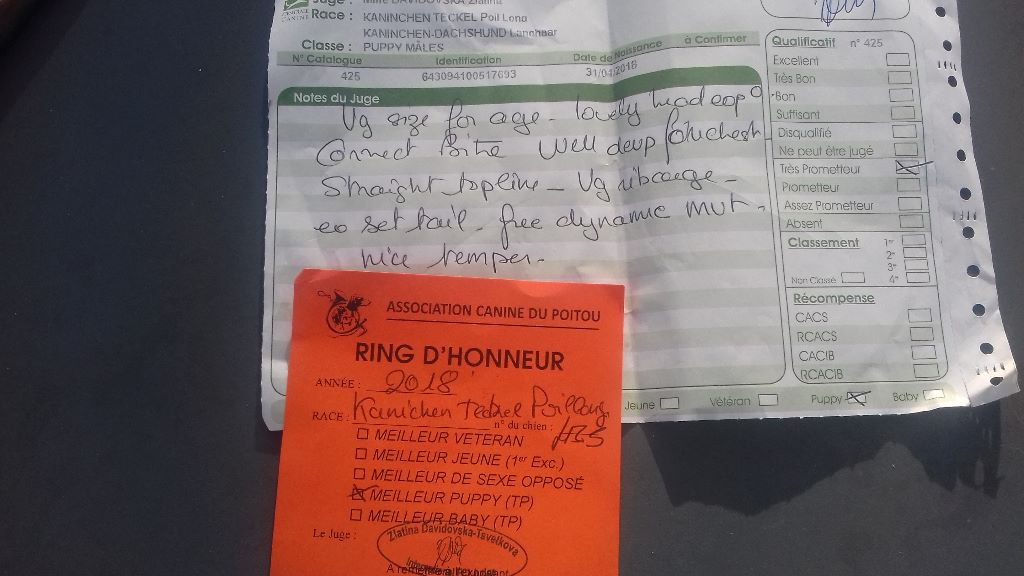 Juge : Mme DAVIDOVSKA Zlatina
Race : KANINCHEN TECKEL Poil Long
KANINCHEN-DACHSHUND Langhaar
Classe : PUPPY MÂLES
N° Catalogue Identification Date de Naissance à Confirmer
425 643094100517693 31/04/2018
Notes du Juge
Vg size for age - lovely head exp°
Correct Bite Well devp forechest
Straight topline - Vg ribcage -
ex set tail - free dynamic mvt -
nice temper -
Qualificatif n° 425
Excellent
Très Bon
Bon
Suffisant
Disqualifié
Ne peut être jugé
Très Prometteur
Prometteur
Assez Prometteur
Absent
Classement 1er
2e
3e
Non Classé 4e
Récompense
CACS
RCACS
CACIB
RCACIB
Jeune Vétéran Puppy Baby
ASSOCIATION CANINE DU POITOU
RING D'HONNEUR
ANNÉE : 2018
RACE : Kaninchen Teckel Poil long
n° du chien : 425
MEILLEUR VETERAN
MEILLEUR JEUNE (1er Exc.)
MEILLEUR DE SEXE OPPOSÉ
MEILLEUR PUPPY (TP)
MEILLEUR BABY (TP)
Le Juge : Zlatina Davidovska-Tavetkova